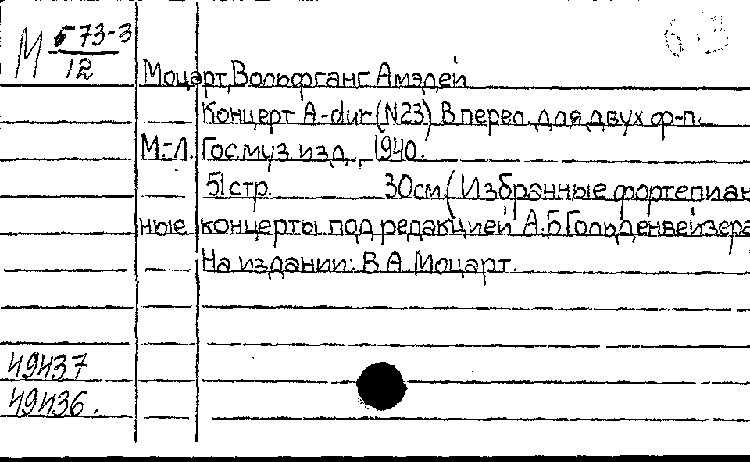 М 573-3
12
63
Моцарт, Вольфганг Амэдей
Концерт A-dur (N23) В перел. для двух ф-п.
М.-Л. Гос. муз. изд., 1940.
51 стр. 30см (Избранные фортепиан
ные концерты под редакцией А.Б Гольденвейзера
На издании: В А. Моцарт.
49437
49436.